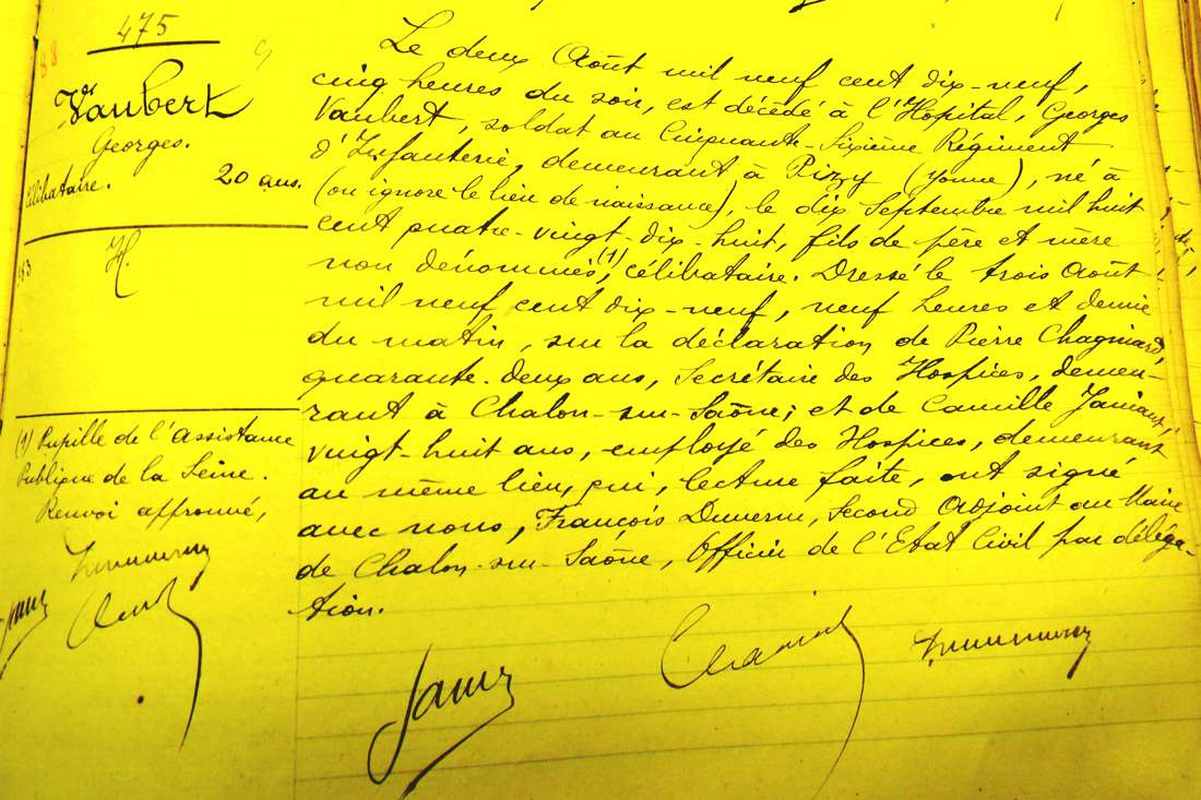 475
88
Vaubert
Georges.
célibataire. 20 ans.
H.
(1) Pupille de l'Assistance
Publique de la Seine.
Renvoi approuvé,
Le deux Août mil neuf cent dix-neuf,
cinq heures du soir, est décédé à l'Hôpital, Georges
Vaubert, soldat au Cinquante-Sixième Régiment
d'Infanterie, demeurant à Pizy (Yonne), né à
(on ignore le lieu de naissance), le dix Septembre mil huit
cent quatre-vingt-dix-huit, fils de père et mère
non dénommés (1), célibataire. Dressé le trois Août
mil neuf cent dix-neuf, neuf heures et demie
du matin, sur la déclaration de Pierre Chagniard,
quarante-deux ans, Secrétaire des Hospices, demeu-
rant à Chalon-sur-Saône; et de Camille
vingt-huit ans, employé des Hospices, demeurant
au même lieu, qui, lecture faite, ont signé
avec nous, François Duverne, Second Adjoint au Maire
de Chalon-sur-Saône, Officier de l'Etat Civil par déléga-
tion.